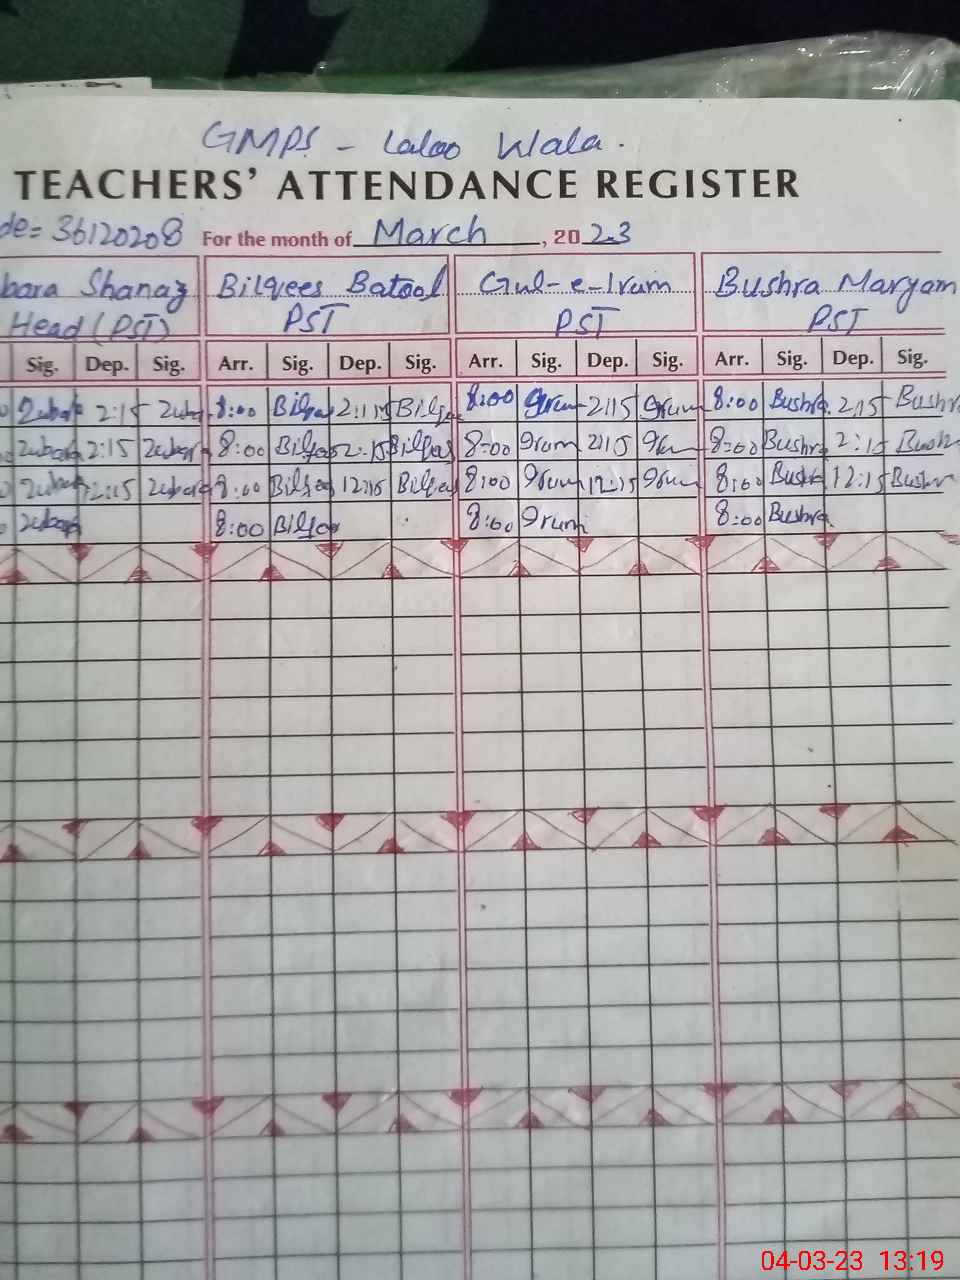 GMPS - Laloo Wala.
TEACHERS' ATTENDANCE REGISTER
de= 36120208 For the month of March, 2023
bara Shanaz Bilqees Batool Gul-e-Irum Bushra Maryam
Head (PST) PST PST PST
Sig. Dep. Sig. Arr. Sig. Dep. Sig. Arr. Sig. Dep. Sig. Arr. Sig. Dep. Sig.
Zubara 2:15 Zubara 8:00 Bilqees 2:15 Bilqees 8:00 Irum 2:15 Irum 8:00 Bushra 2:15 Bushra
Zubara 2:15 Zubara 8:00 Bilqees 2:15 Bilqees 8:00 Irum 2:15 Irum 8:00 Bushra 2:15 Bushra
Zubara 12:15 Zubara 8:00 Bilqees 12:15 Bilqees 8:00 Irum 12:15 Irum 8:00 Bushra 12:15 Bushra
Zubara 8:00 Bilqees 8:00 Irum 8:00 Bushra
04-03-23 13:19